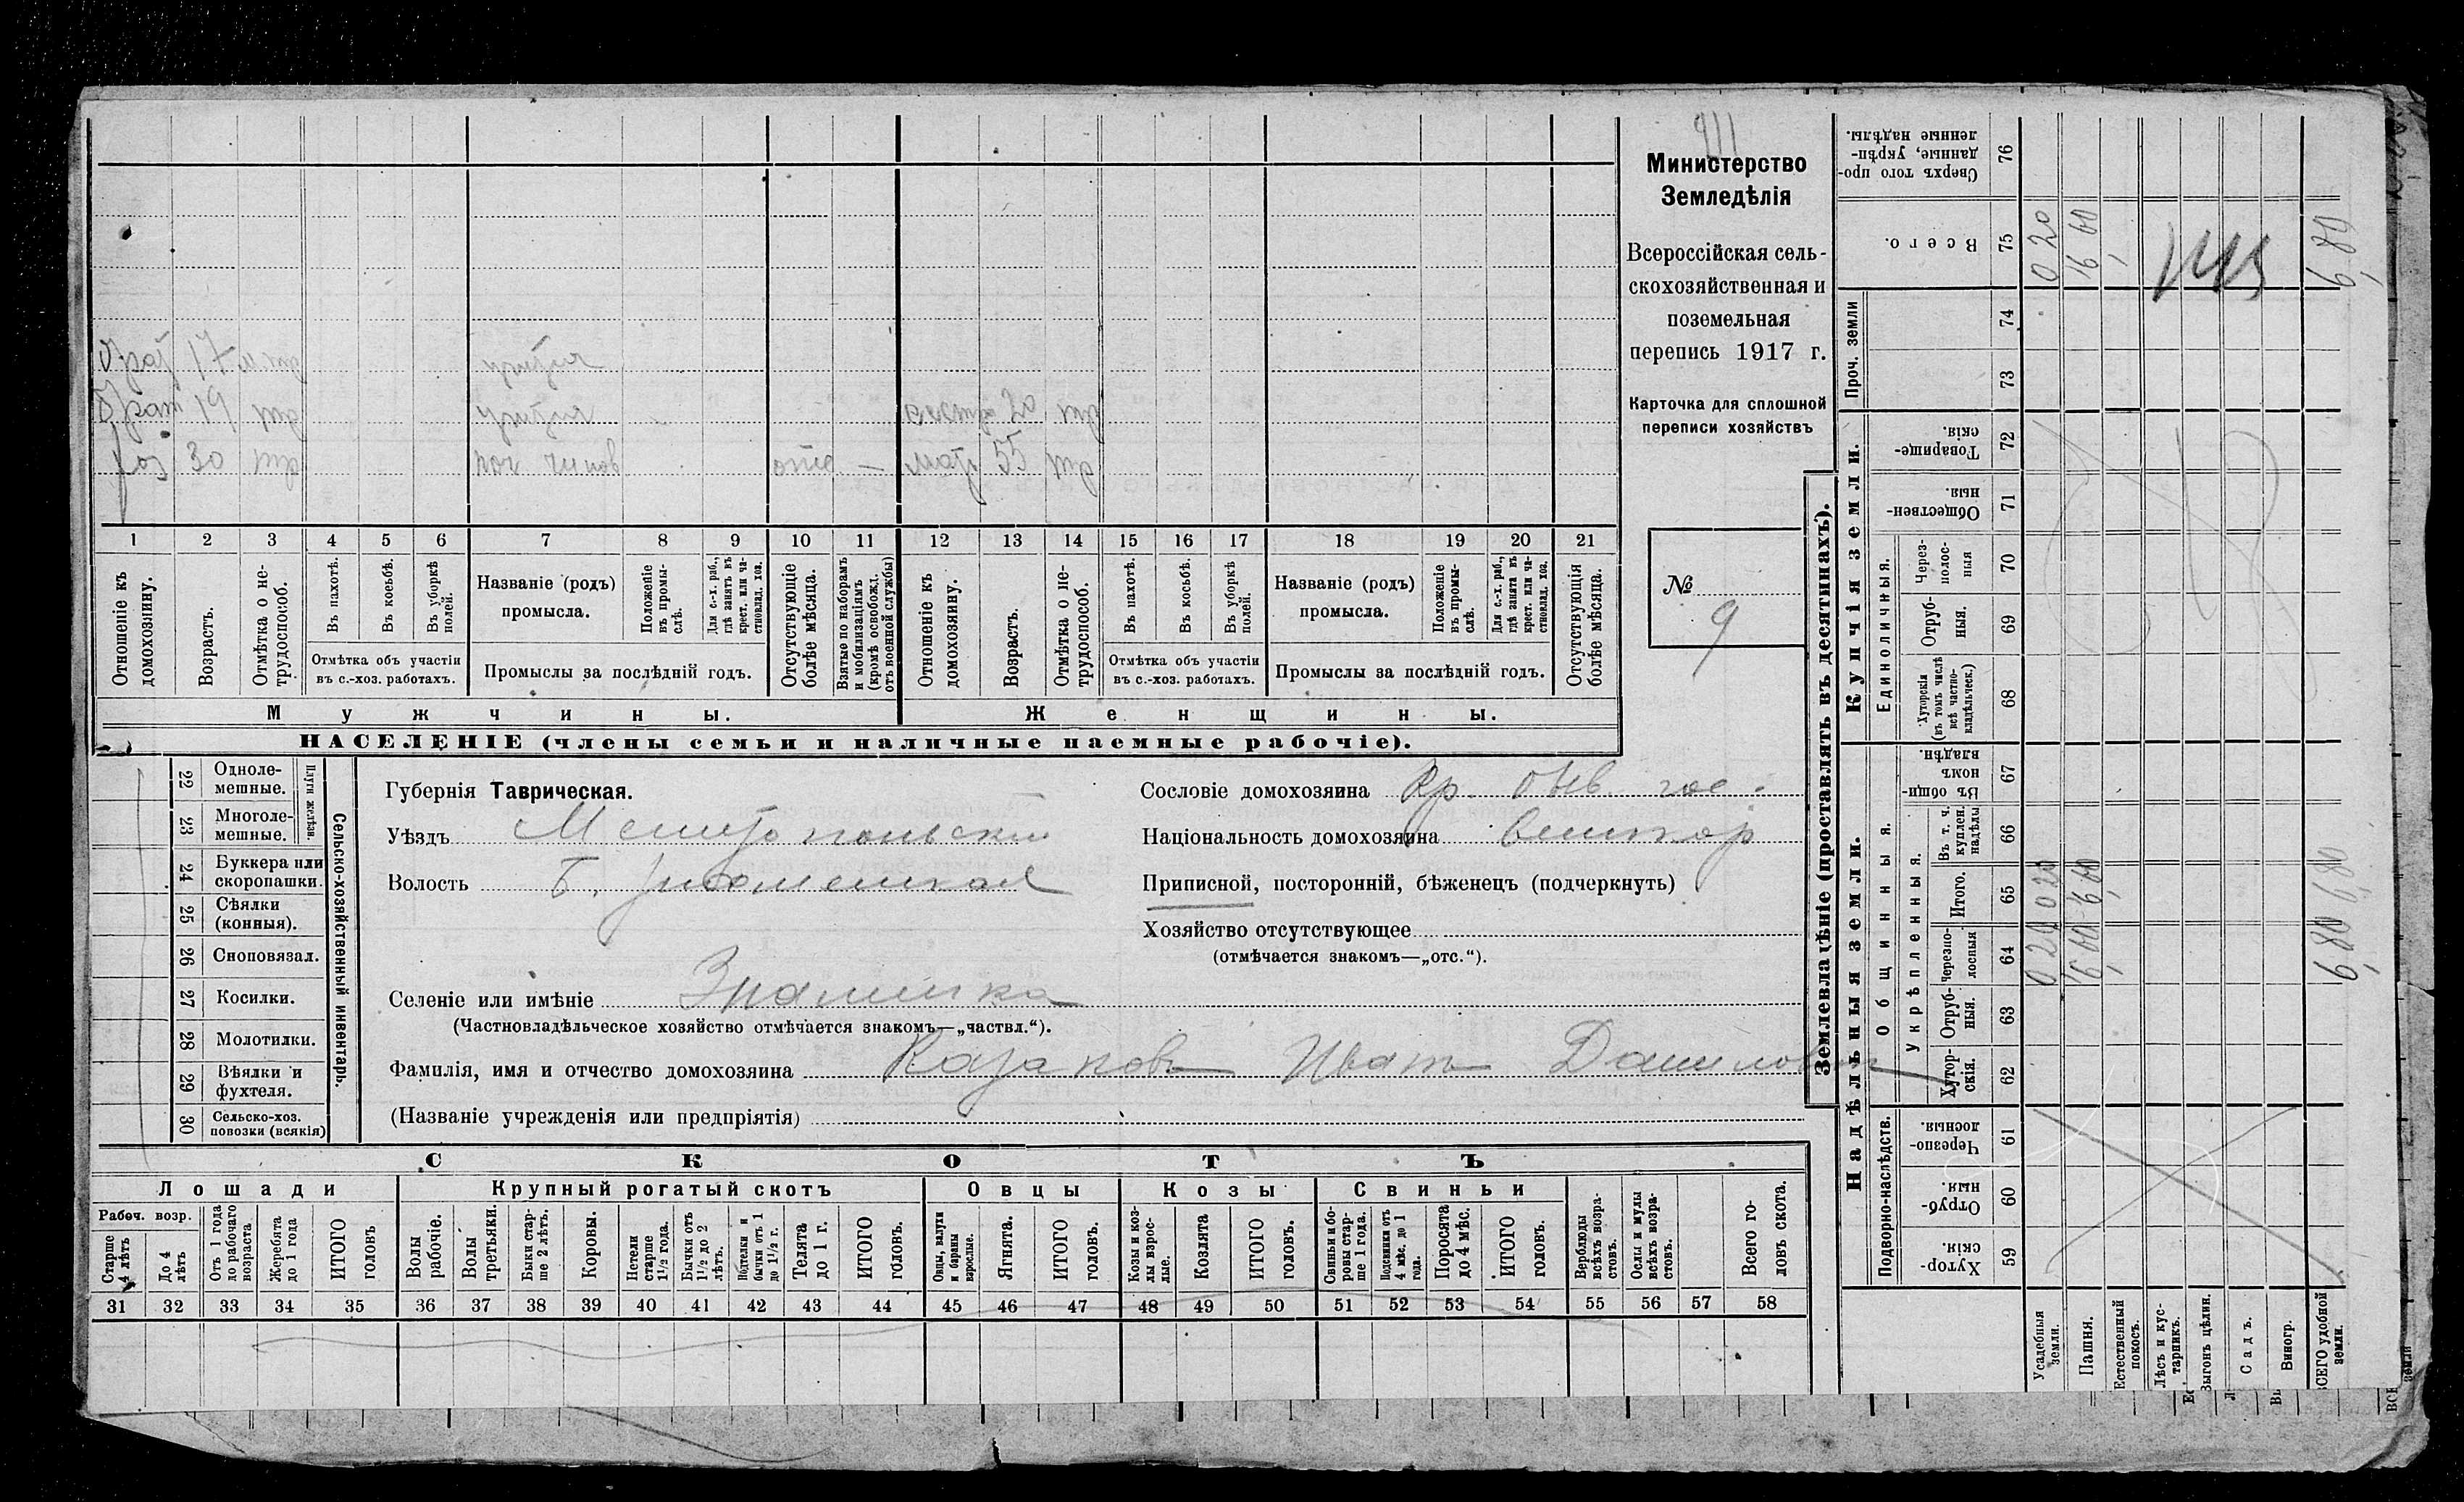 Министерство
Земледѣлія
Всероссійская сель-
скохозяйственная и
поземельная
перепись 1917 г.
Карточка для сплошной
переписи хозяйствъ
№
9
17
Брат 19
30
20
мать 55
1 2 3 4 5 6 7 8 9 10 11 12 13 14 15 16 17 18 19 20 21
Отношеніе къ домохозяину.
Возрастъ.
Отмѣтка о не-трудоспособ.
Въ пахотѣ.
Въ косьбѣ.
Въ уборкѣ полей.
Отмѣтка объ участіи
въ с.-хоз. работахъ.
Названіе (родъ)
промысла.
Положеніе въ промы-слѣ.
Для с.-х. раб., гдѣ занятъ въ крест. или ча-стновлад. хоз.
Промыслы за послѣдній годъ.
Отсутствующіе болѣе мѣсяца.
Взятые по наборамъ и мобилизаціямъ (кромѣ освобожд. отъ военной службы)
Отношеніе къ домохозяину.
Возрастъ.
Отмѣтка о не-трудоспособ.
Въ пахотѣ.
Въ косьбѣ.
Въ уборкѣ полей.
Отмѣтка объ участіи
въ с.-хоз. работахъ.
Названіе (родъ)
промысла.
Положеніе въ промы-слѣ.
Для с.-х. раб., гдѣ занята въ крест. или ча-стновлад. хоз.
Промыслы за послѣдній годъ.
Отсутствующія болѣе мѣсяца.
Мужчины.
Женщины.
НАСЕЛЕНІЕ (члены семьи и наличные наемные рабочіе).
22 Одноле-мешные.
23 Многоле-мешные.
Плуги желѣзн.
24 Буккера или скоропашки.
25 Сѣялки (конныя).
26 Сноповязал.
27 Косилки.
28 Молотилки.
29 Вѣялки и фухтеля.
30 Сельско-хоз. повозки (всякія)
Сельско-хозяйственный инвентарь.
Губернія Таврическая.
Уѣздъ Мелитопольский
Волость Б. Знаменская
Селеніе или имѣніе Знаменка
(Частновладѣльческое хозяйство отмѣчается знакомъ—„частвл.“).
Фамилія, имя и отчество домохозяина Казаковъ Иванъ Данилович
(Названіе учрежденія или предпріятія)
Сословіе домохозяина Кр. быв. гос.
Національность домохозяина Великор
Приписной, посторонній, бѣженецъ (подчеркнуть)
Хозяйство отсутствующее
(отмѣчается знакомъ—„отс.“).
СКОТЪ
Лошади
Рабоч. возр.
Старше 4 лѣтъ
До 4 лѣтъ
Отъ 1 года до рабочаго возраста
Жеребята до 1 года
ИТОГО головъ
Крупный рогатый скотъ
Волы рабочіе.
Волы третьяки.
Быки стар-ше 2 лѣтъ.
Коровы.
Нетели старше 1½ года.
Бычки отъ 1½ до 2 лѣтъ.
Подтелки и бычки отъ 1 до 1½ г.
Телята до 1 г.
ИТОГО головъ.
Овцы
Овцы, валухи и бараны взрослые.
Ягнята.
ИТОГО головъ.
Козы
Козы и коз-лы взрос-лые.
Козлята
ИТОГО головъ.
Свиньи
Свиньи и бо-ровы стар-ше 1 года.
Подсвинки отъ 4 мѣс. до 1 года.
Поросята до 4 мѣс.
ИТОГО головъ.
Верблюды всѣхъ возра-стовъ.
Ослы и мулы всѣхъ возра-стовъ.
Всего го-ловъ скота.
31 32 33 34 35 36 37 38 39 40 41 42 43 44 45 46 47 48 49 50 51 52 53 54 55 56 57 58
Землевладѣніе (проставлять въ десятинахъ).
Надѣльныя земли.
Купчія земли.
Проч. земли
Подворно-наслѣдств.
Общинныя.
Укрѣпленныя.
Единоличныя.
Хутор-скія. 59
Отруб-ныя. 60
Черезпо-лосныя 61
Хутор-скія. 62
Отруб-ныя. 63
Черезпо-лосныя 64
Итого. 65
Въ т. ч. куплен. надѣлы 66
Въ общи-номъ владѣн. 67
Хуторскія (въ томъ числѣ всѣ частно-владѣльческ.) 68
Отруб-ныя. 69
Через-полос-ныя 70
Обществен-ныя. 71
Товарище-скія. 72
73
74
Всего. 75
Сверхъ того про-данные, укрѣп-ленные надѣлы. 76
Усадебныя земли. 0 20 0 20 0 20
Пашня.
Естественный покосъ.
Лѣсъ и кус-тарникъ.
Выгонъ цѣлин.
Садъ.
Виногр.
ВСЕГО удобной земли. 6,80 6,80 6,80